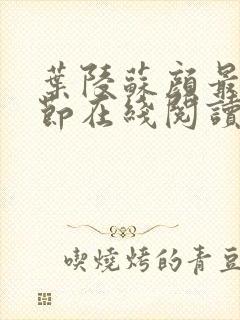 葉陵蘇顔最
節在綫閱讀
喫燒烤的青豆